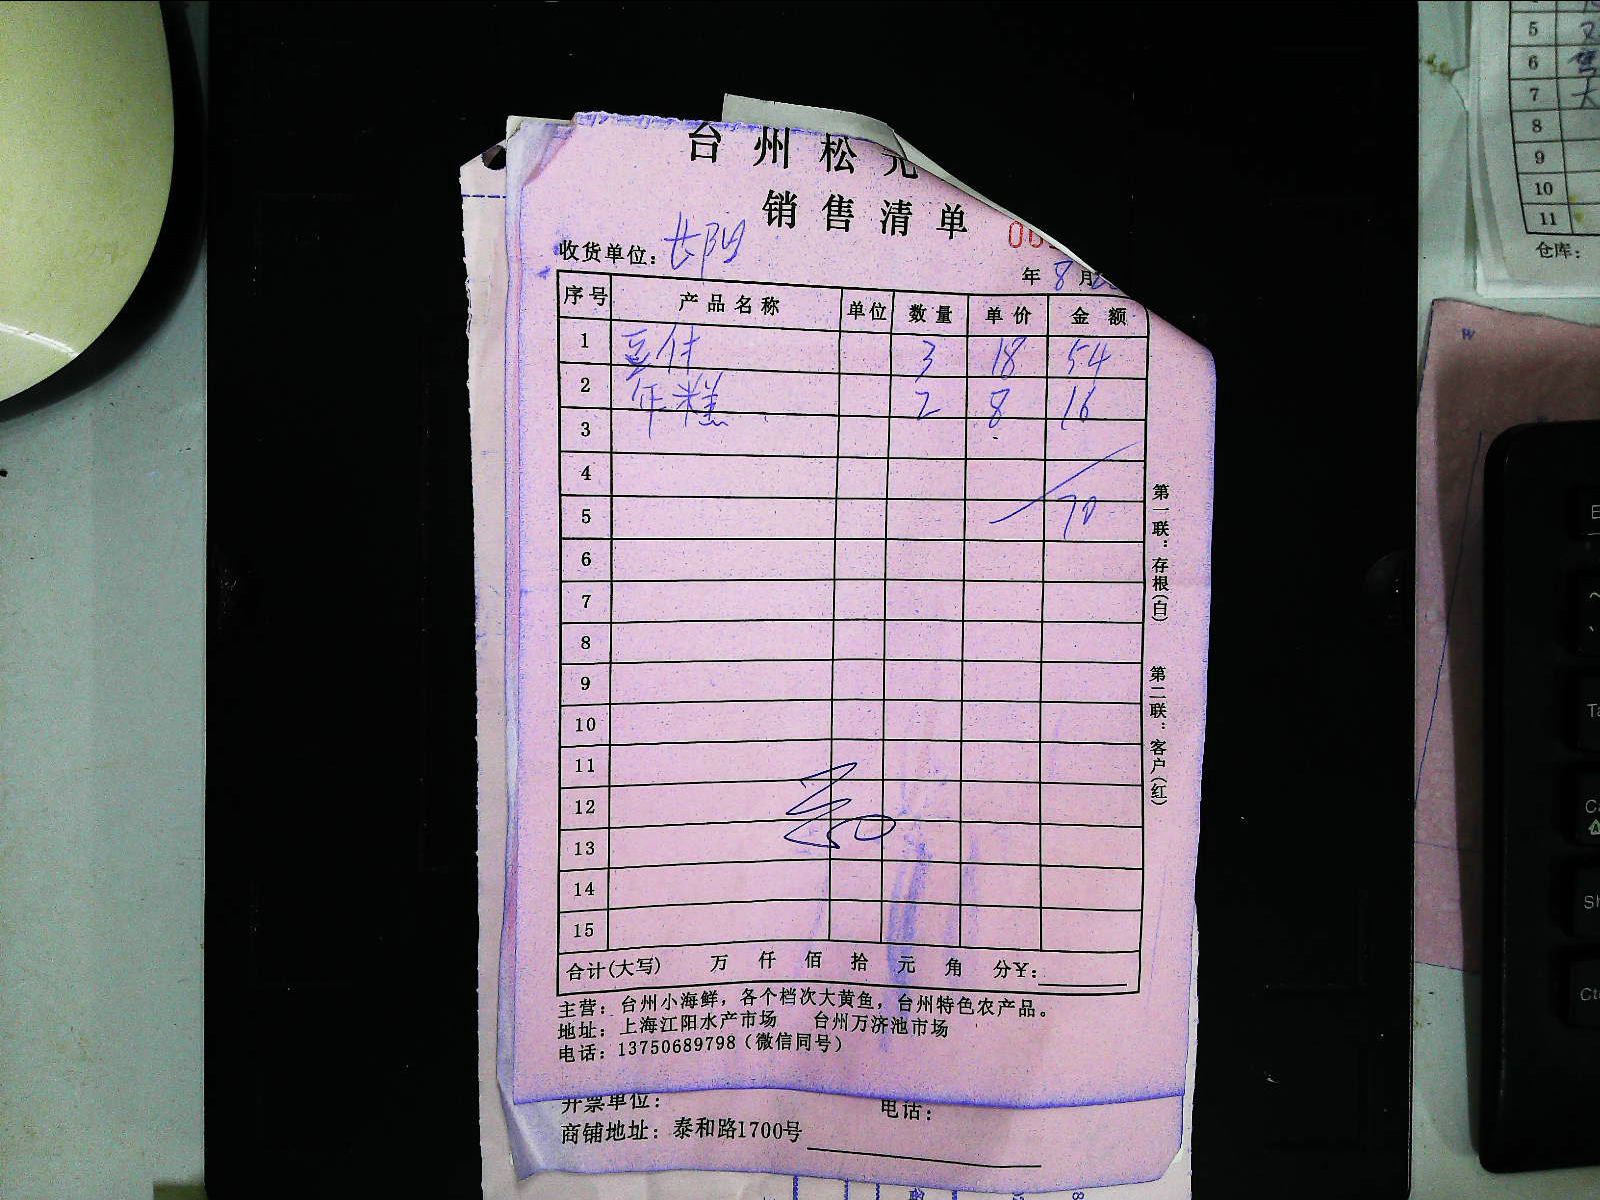 台州松元
销售清单
00
收货单位：长阳
年 8 月
序号 产品名称 单位 数量 单价 金额
1 豆付 3 18 54
2 年糕 2 8 16
3
4
5 70
6
7
8
9
10
11
12
13
14
15
合计(大写) 万 仟 佰 拾 元 角 分¥：
主营：台州小海鲜，各个档次大黄鱼，台州特色农产品。
地址：上海江阳水产市场 台州万济池市场
电话：13750689798（微信同号）
第一联：存根(白) 第二联：客户(红)
开票单位： 电话：
商铺地址：泰和路1700号
5
6
7
8
9
10
11
仓库：